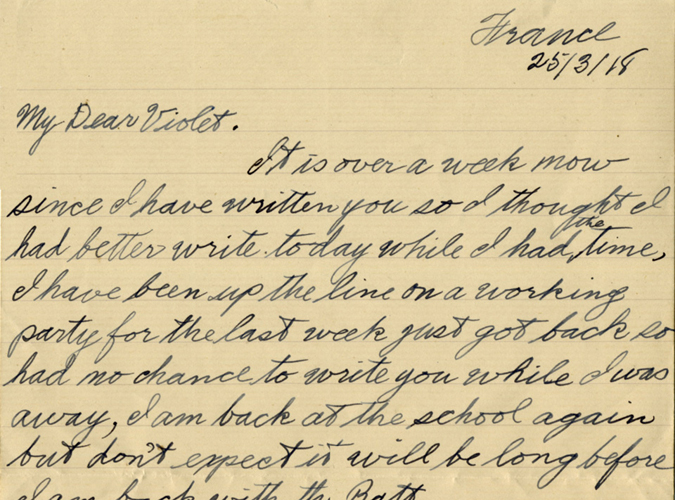 France
25/3/18
My Dear Violet.
It is over a week now
since I have written you so I thought I
had better write today while I had the time,
I have been up the line on a working
party for the last week just got back so
had no chance to write you while I was
away, I am back at the school again
but don't expect it will be long before
I am back with the Batt